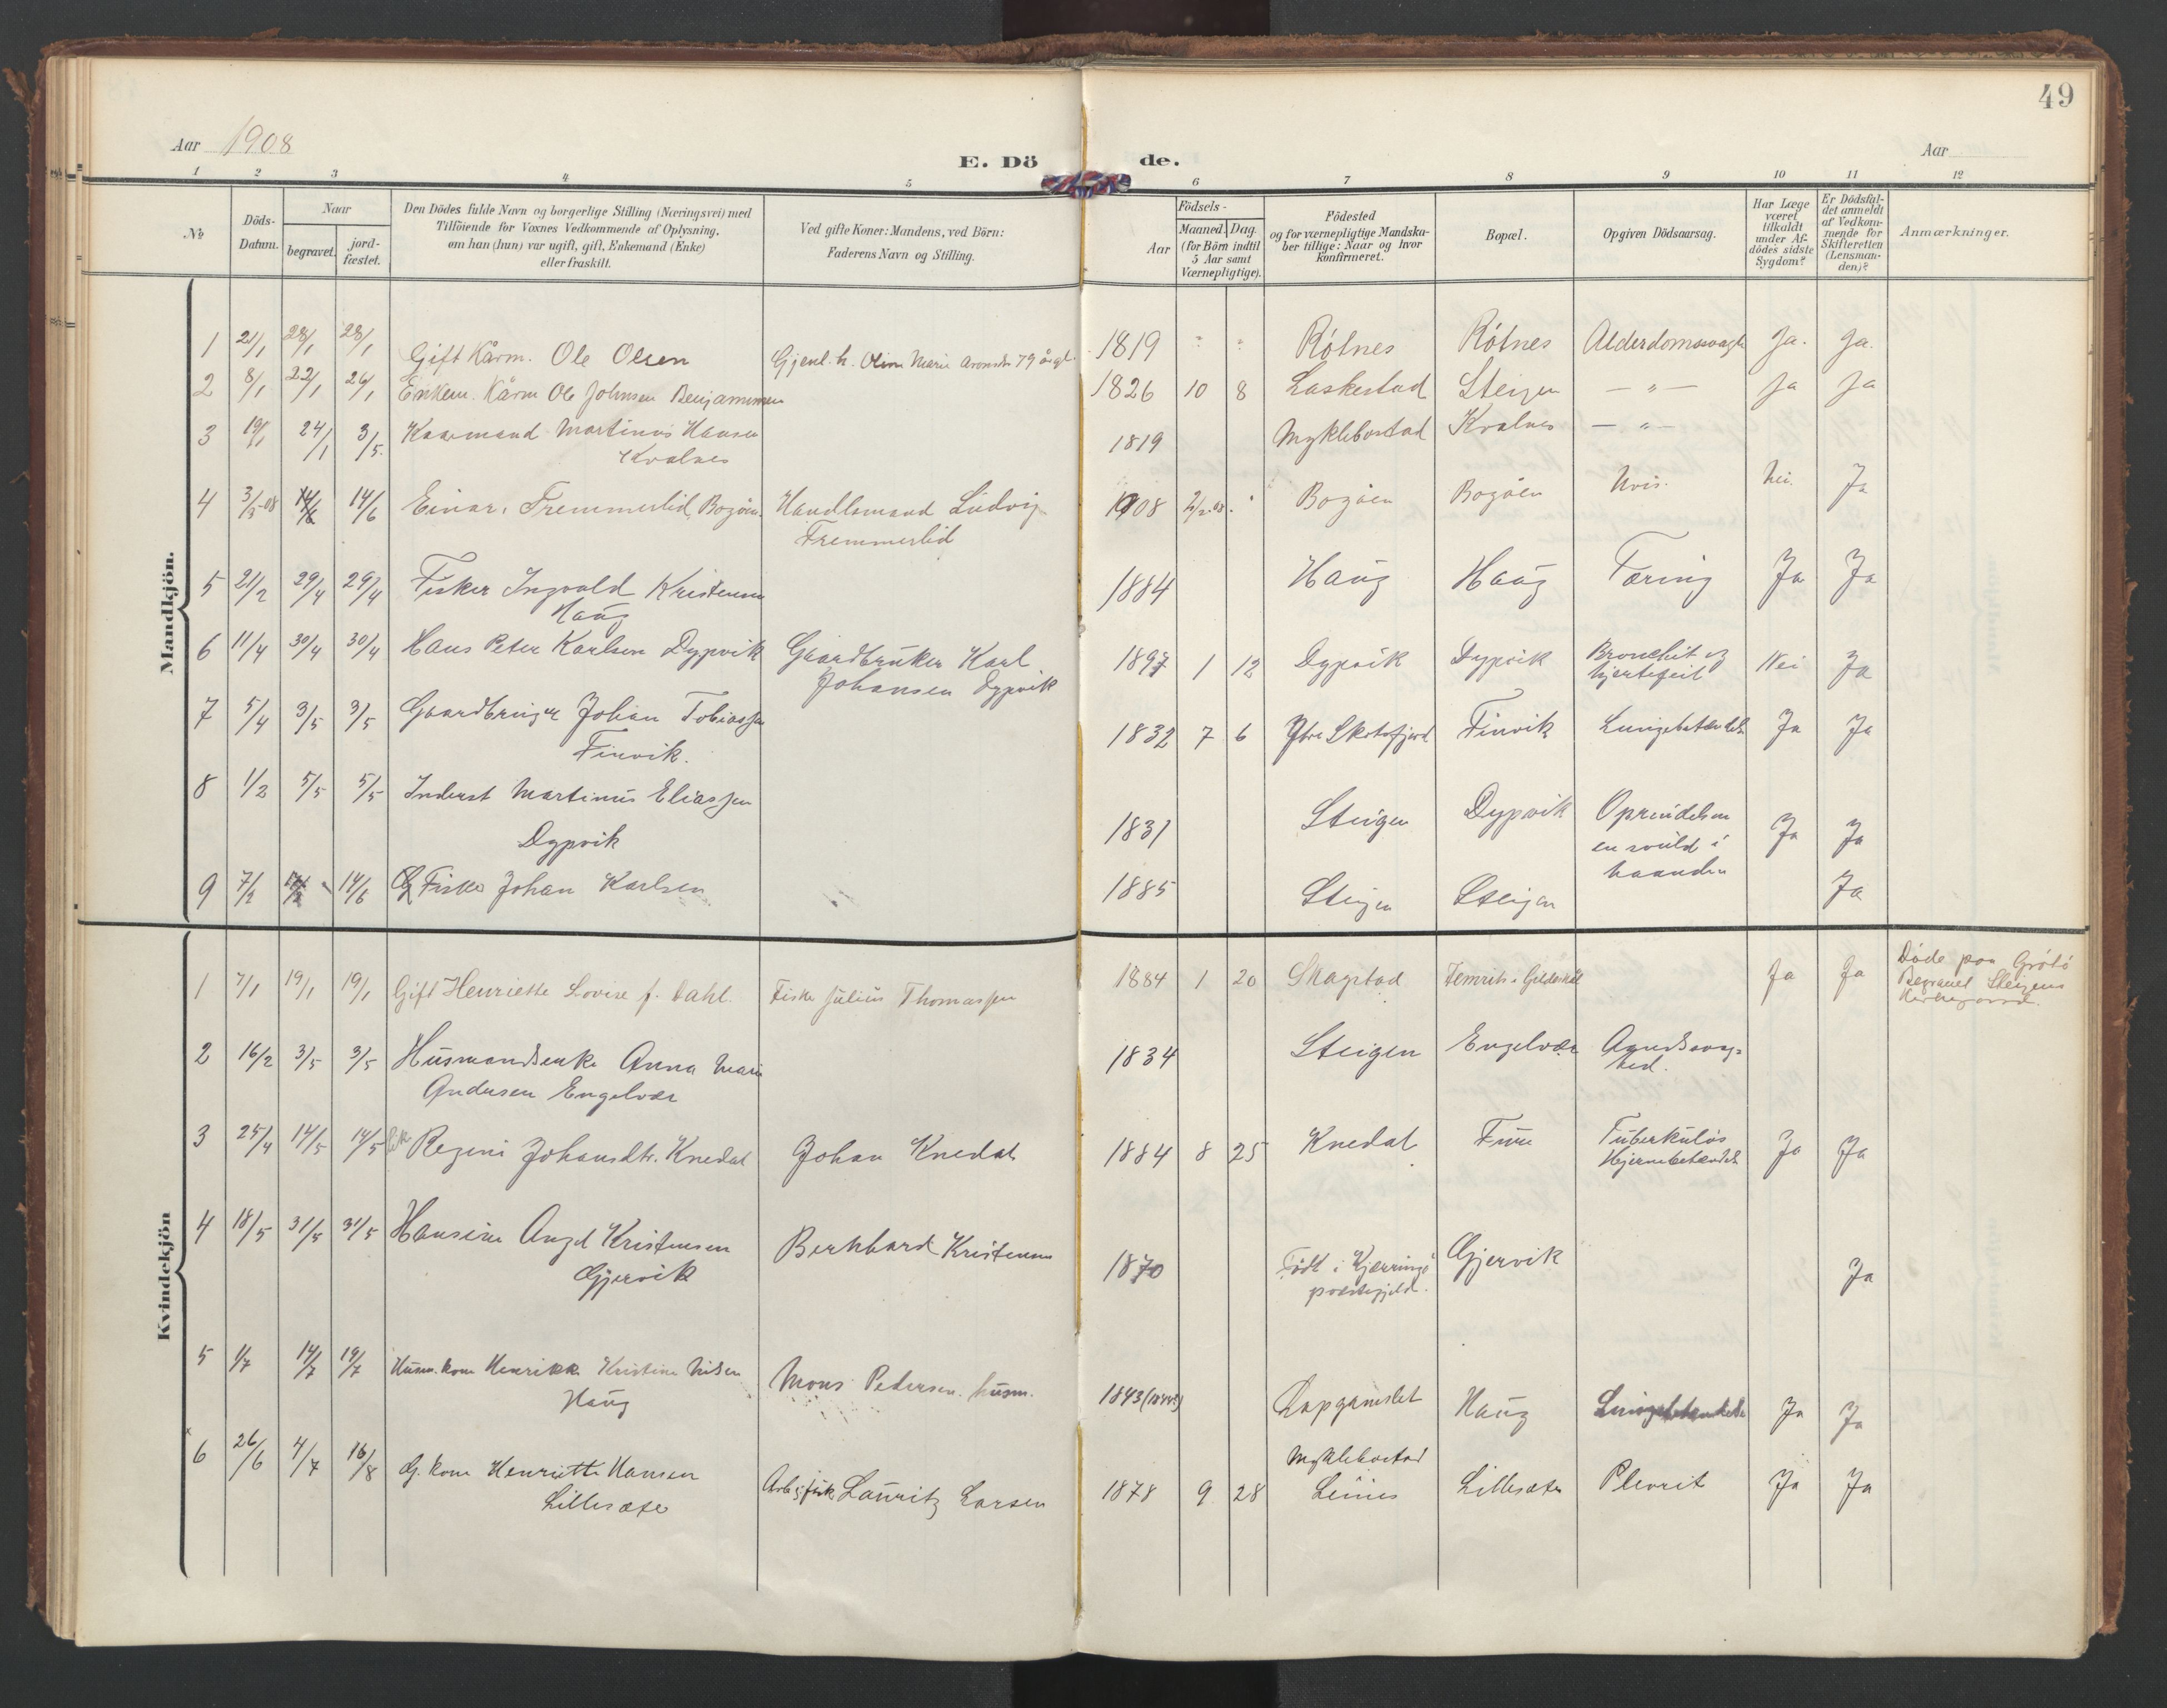 49
Aar 1908
E. Dö de.
Aar
1 2 3 4 5 6 7 8 9 10 11 12
No
Döds-
Datum.
Naar
begravet.
jord-
fæstet.
Den Dödes fulde Navn og borgerlige Stilling (Næringsvei) med
Tilföiende for Voxnes Vedkommende af Oplysning,
om han (hun) var ugift, gift, Enkemand (Enke)
eller fraskilt.
Ved gifte Koner: Mandens, ved Börn:
Faderens Navn og Stilling.
Födsels-
Aar
Maaned. Dag.
(for Börn indtil
5 Aar samt
Værnepligtige).
Födested
og for værnepligtige Mandska-
ber tillige: Naar og hvor
konfirmeret.
Bopæl.
Opgiven Dödsaarsag.
Har Læge
været
tilkaldt
under Af-
dödes sidste
Sygdom?
Er Dödsfal-
det anmeldt
af Vedkom-
mende for
Skifteretten
(Lensman-
den)?
Anmærkninger.
Mandkjön.
1 21/1 28/1 28/1 Gift Kårm. Ole Olsen Gjenl. h. Olina Marie 79 år gl. 1819 " " Rótnes Rótnes Alderdomssvagh Ja. Ja.
2 8/1 22/1 26/1 Enkem. Kårm Ole Johnsen Benjaminsen 1826 10 8 Laskestad Steigen — " — Ja Ja
3 19/1 24/1 3/5. Kaarmand Martinus Hansen
Kvalnes
1819 Myklebostad Kvalnes — " —
4 3/5-08 14/6 14/6 Einar, Fremmerlid, Bogöen. Handlsmand Ludvig
Fremmerlid
1908 2/2.08. Bogöen Bogöen Uvis. Nei. Ja
5 21/2 29/4 29/4 Fisker Ingvald Kristensen
Haug
1884 Haug Haug Tæring Ja Ja
6 11/4 30/4 30/4 Hans Peter Karlsen Dypvik Gaardbruker Karl
Johansen Dypvik
1897 1 12 Dypvik Dypvik Bronchit og
hjertefeil
Nei Ja
7 5/4 3/5 3/5 Gaardbruger Johan Tobiassen
Finvik.
1832 7 6 Ytre Skotsfjord Finvik Lungebetændels Ja Ja
8 1/2 5/5 5/5 Inderst Martinus Eliassen
Dypvik
1831 Steigen Dypvik
en svuld i
haanden
Ja Ja
9 7/2 14/6 Fisker Johan Karlsen 1885 Steigen Steigen Ja
Kvindekjön
1 7/1 19/1 19/1 Gift Henriette Lovise f. Dahl. Fisker Julius Thomassen 1884 1 20 Skagstad Gildeskål Ja Ja Döde paa Grötö
Begravet Steigens
Kirkegaard.
2 16/2 3/5 3/5 Husmandsenke Anna Marie
Andersen Engelvær
1834 Steigen Engelvær
3 25/4 14/5 14/5 Regine Johansdtr. Knedal Johan Knedal 1884 8 25 Knedal Furu Tuberkuløs
Hjernebetændels
Ja Ja
4 18/5 31/5 31/5 Hansine Angel Kristensen
Gjervik
Bernhard Kristensen 1870 Födt i Kjærringö
prestegjeld.
Gjervik Ja
5 1/7 14/7 19/7 Husm. kone Henrikke Kristine Nilsen
Haug
Mons Pedersen. husm. 1843 Haug Lungebetændelse Ja Ja
6 26/6 4/7 16/8 G. kone Henriette Hansen
Lillesæter
Arb. & fisk. Lauritz Larsen 1878 9 28 Myklebostad
Leines
Lillesæter Plevrit Ja Ja